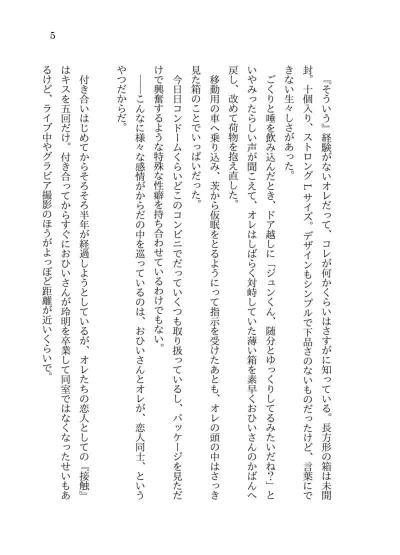 5
『そういう』経験がないオレだって、コレが何かくらいはさすがに知っている。長方形の箱は未開
封。十個入り、ストロングLサイズ。デザインもシンプルで下品さのないものだったけど、言葉にで
きない生々しさがあった。
ごくりと唾を飲み込んだとき、ドア越しに「ジュンくん、随分とゆっくりしてるみたいだね？」と
いやみったらしい声が聞こえて、オレはしばらく対峙していた薄い箱を素早くおひいさんのかばんへ
戻し、改めて荷物を抱え直した。
移動用の車へ乗り込み、茨から仮眠をとるようにって指示を受けたあとも、オレの頭の中はさっき
見た箱のことでいっぱいだった。
今日日コンドームくらいどこのコンビニでだっていくつも取り扱っているし、パッケージを見ただ
けで興奮するような特殊な性癖を持ち合わせているわけでもない。
――こんなに様々な感情がからだの中を巡っているのは、おひいさんとオレが、恋人同士、という
やつだからだ。
付き合いはじめてからそろそろ半年が経過しようとしているが、オレたちの恋人としての『接触』
はキスを五回だけ。付き合ってからすぐにおひいさんが玲明を卒業して同室ではなくなったせいもあ
るけど、ライブ中やグラビア撮影のほうがよっぽど距離が近いくらいで。